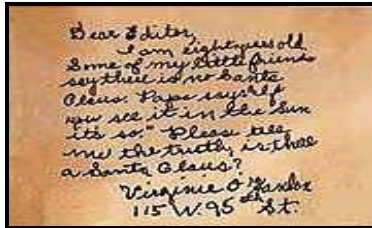 Dear Editor,
I am eight years old
Some of my little friends
say there is no Santa
Claus. Papa says "If
you see it in the Sun
its so." Please tell
me the truth, is there
a Santa Claus?
Virginia O'Hanlon
115 W. 95th St.